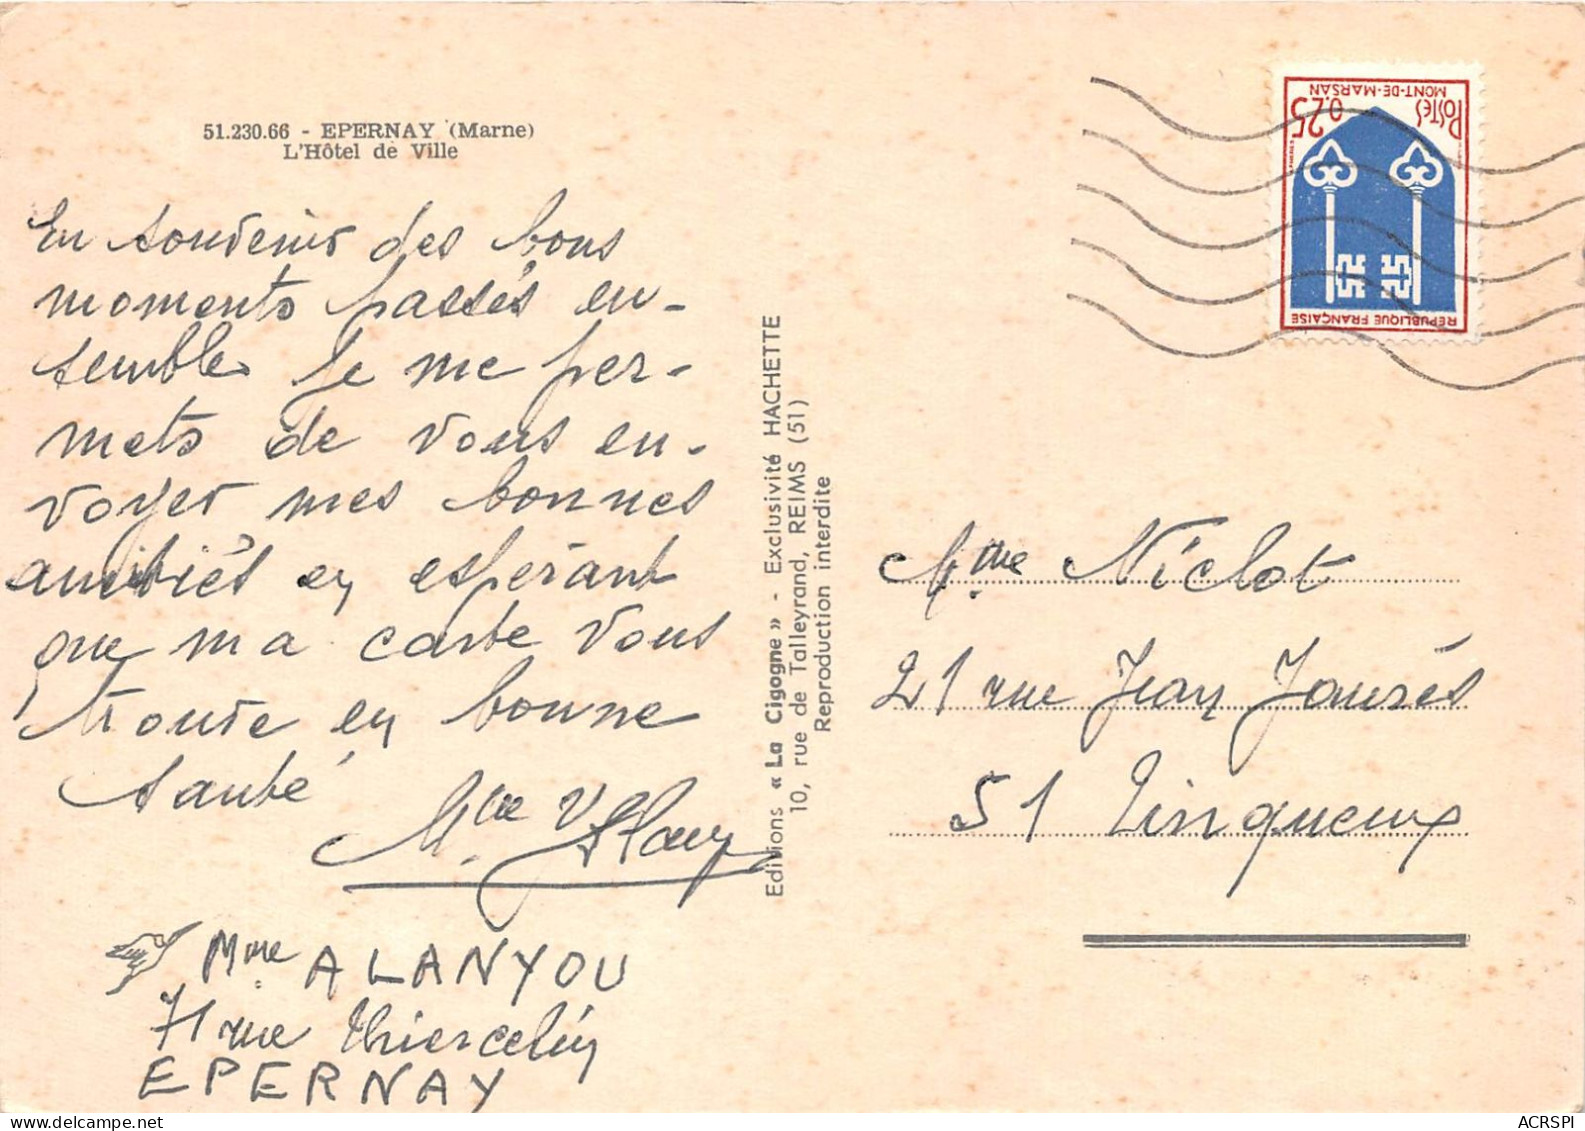 51.230.66 - EPERNAY (Marne)
L'Hôtel de Ville
En souvenir des bons
moments passés en-
semble Je me per-
mets de vous en-
voyer mes bonnes
amitiés en espérant
que ma carte vous
trouve en bonne
santé
Mme
Mme ALANYOU
71 rue Thiercelin
EPERNAY
Editions « La Cigogne » - Exclusivité HACHETTE
10, rue de Talleyrand, REIMS (51)
Reproduction interdite
POSTES
0.25
MONT-DE-MARSAN
REPUBLIQUE FRANÇAISE
Mme Niclot
21 rue Jean Jaurés
51 Tinqueux
ACRSPI